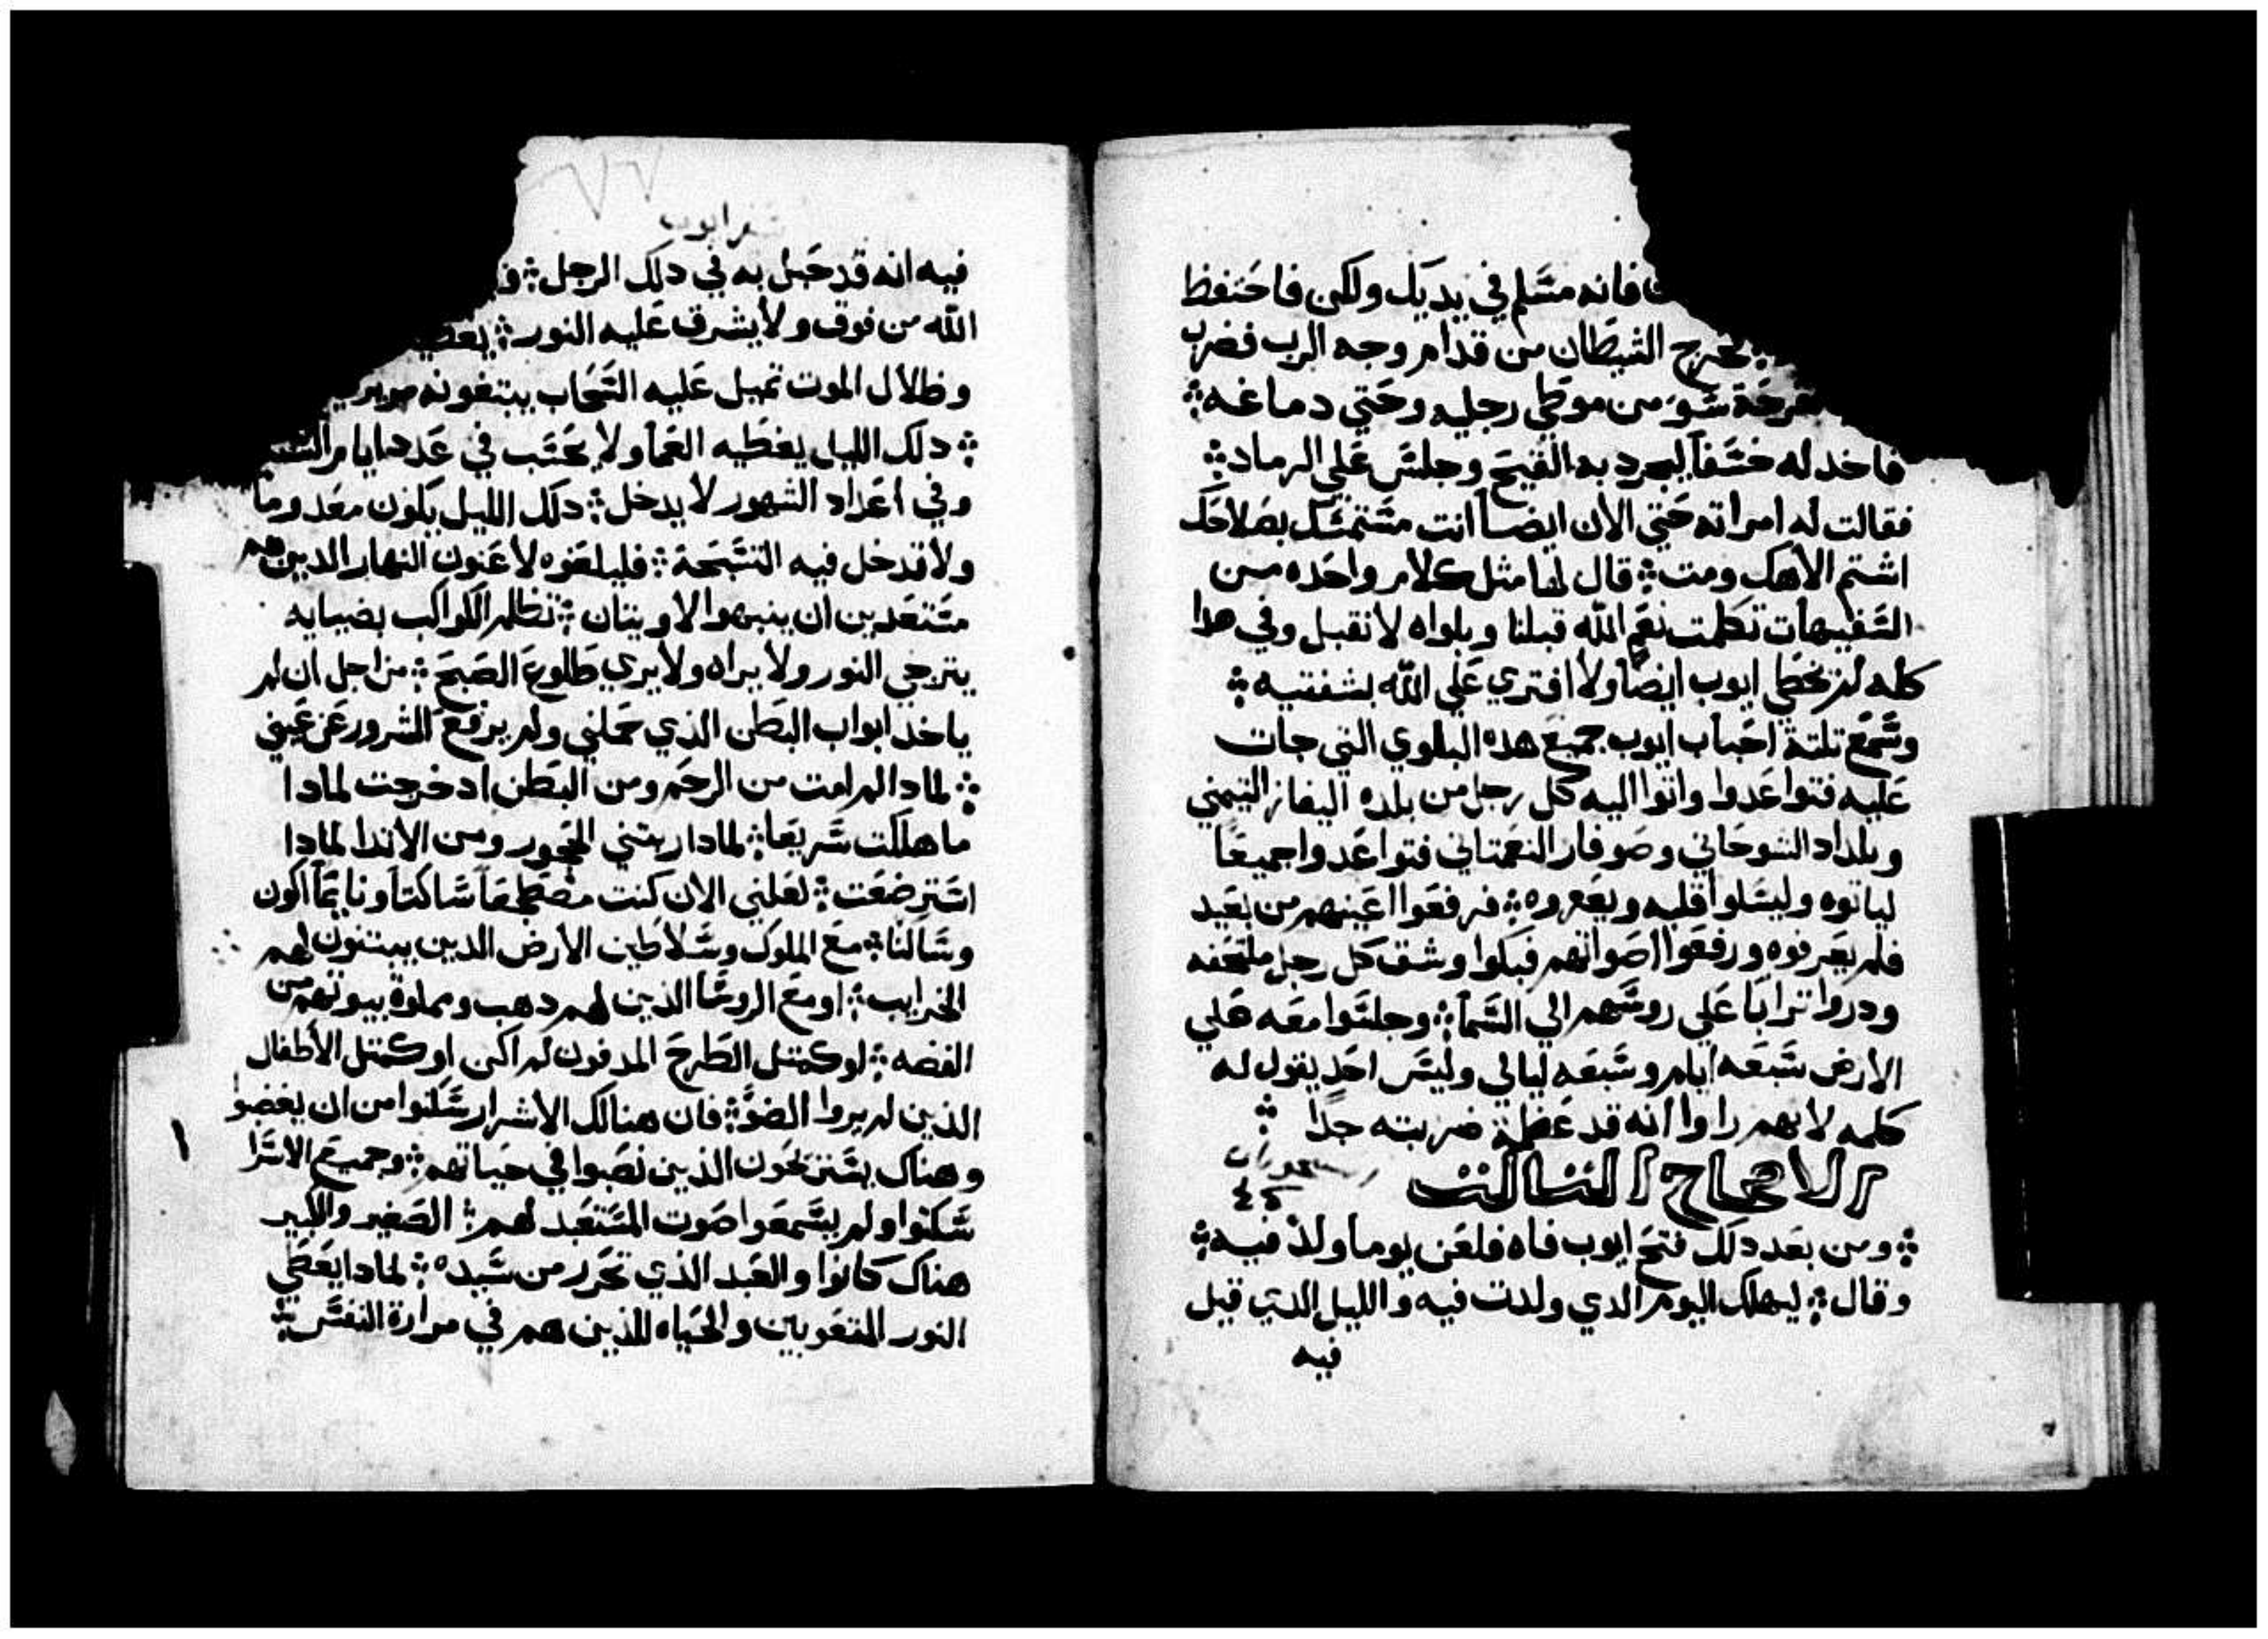 فانه مسَلم في يديك ولكن فاحَتفظ
فخرج الشيطَان من قدام وجه الرب فضرب
قرحَة سَوَ من موطَي رجليه وحَتي دماغه
فاخد له خسَفاً ليجرد به القيحَ وجلسَ عَلي الرماد
فقالت له امراته حَتي الان ايضاً انت مسَتمسَك بصَلاحَك
اشتم الاهك ومت قال لها مثل كلام واحَده من
السَفيهات تكلمت نعَم الله قبلنا وبلواه لا نقبل وفي هدا
كله لم يخطَي ايوب ايضاً ولا افتري عَلي الله بشفتيه
وسَمعَ تلتة احَباب ايوب جميعَ هده البلوي التي جات
عَليه فتواعَدوا واتوا اليه كل رجل من بلده اليفاز التيمني
وبلداد الشوحَاني وصَوفار النعَمتاني فتواعَدوا جميعَاً
لياتوه وليسَلوا قلبه ويعَزوه فرفعَوا اعَينهم من بعَيد
فلم يعَرفوه ورفعَوا اصَواتهم فبكوا وشق كل رجل ملحَفه
ودروا تراباً عَلي روسَهم الي السَمآ وجلسَوا معَه عَلي
الارض سَبعَه ايام وسَبعَه ليالي وليسَ احَد يقول له
كلمه لانهم راوا انه قد عَظمة ضربته جداً
الاصحاح التالت
ومن بعَد دلك فتحَ ايوب فاه فلعَن يوماً ولد فيه
وقال ليهلك اليوم الدي ولدت فيه والليل الدي قيل
فيه
سفر ايوب
فيه انه قد حَبل به في دلك الرجل
الله من فوق ولا يشرق عَليه النور
وظلال الموت تميل عَليه السَحَاب يبتغونه
دلك الليل يغطَيه العَمآ ولا يحَسَب في عَدد ايام السَنه
وفي اعَداد الشهور لا يدخل دلك الليل يكون معَدوماً
ولا قد خل فيه التسَبحَة فليلعَنوه لاعَنون النهار الدين هم
مسَتعَدين ان ينبهوا لاويتان تظلم الكواكب بضبابه
يترجي النور ولا يراه ولا يري طَلوعَ الصَبحَ من اجل ان لم
ياخد ابواب البطَن الذي حَملني ولم يرفعَ الشرور عَن عَيني
لمادا لم امت من الرحَم ومن البطَن اد خرجت لمادا
ما هلكت سَريعَاً لمادا ربتني الحَجور ومن الاتدا لمادا
اسَترضعَت لعَلني الان كنت مضطَجعَاً سَاكتاً ونايماً اكون
وسَالتا معَ الملوك وسَلاطَين الارض الدين يبتنون لهم
الخرايب او معَ الروسَآ الذين لهم دهب ومملوة بيوتهم من
الفضه او كمتل الطَرحَ المدفون لم اكن او كمتل الأطَفال
الذين لم يروا الضوَ فان هنالك الاشرار سَكنوا من ان يغضبوا
وهناك يسَتريحَون الذين نصَبوا في حَياتهم وجميعَ الاسَرا
سَكنوا ولم يسَمعَوا صَوت المسَتعَبد لهم الصَغير والكبير
هناك كانوا والعَبد الذي تحَرر من سَيده لمادا يعَطَي
النور للمتعَوبين والحَياه للذين هم في مرارة النفسَ